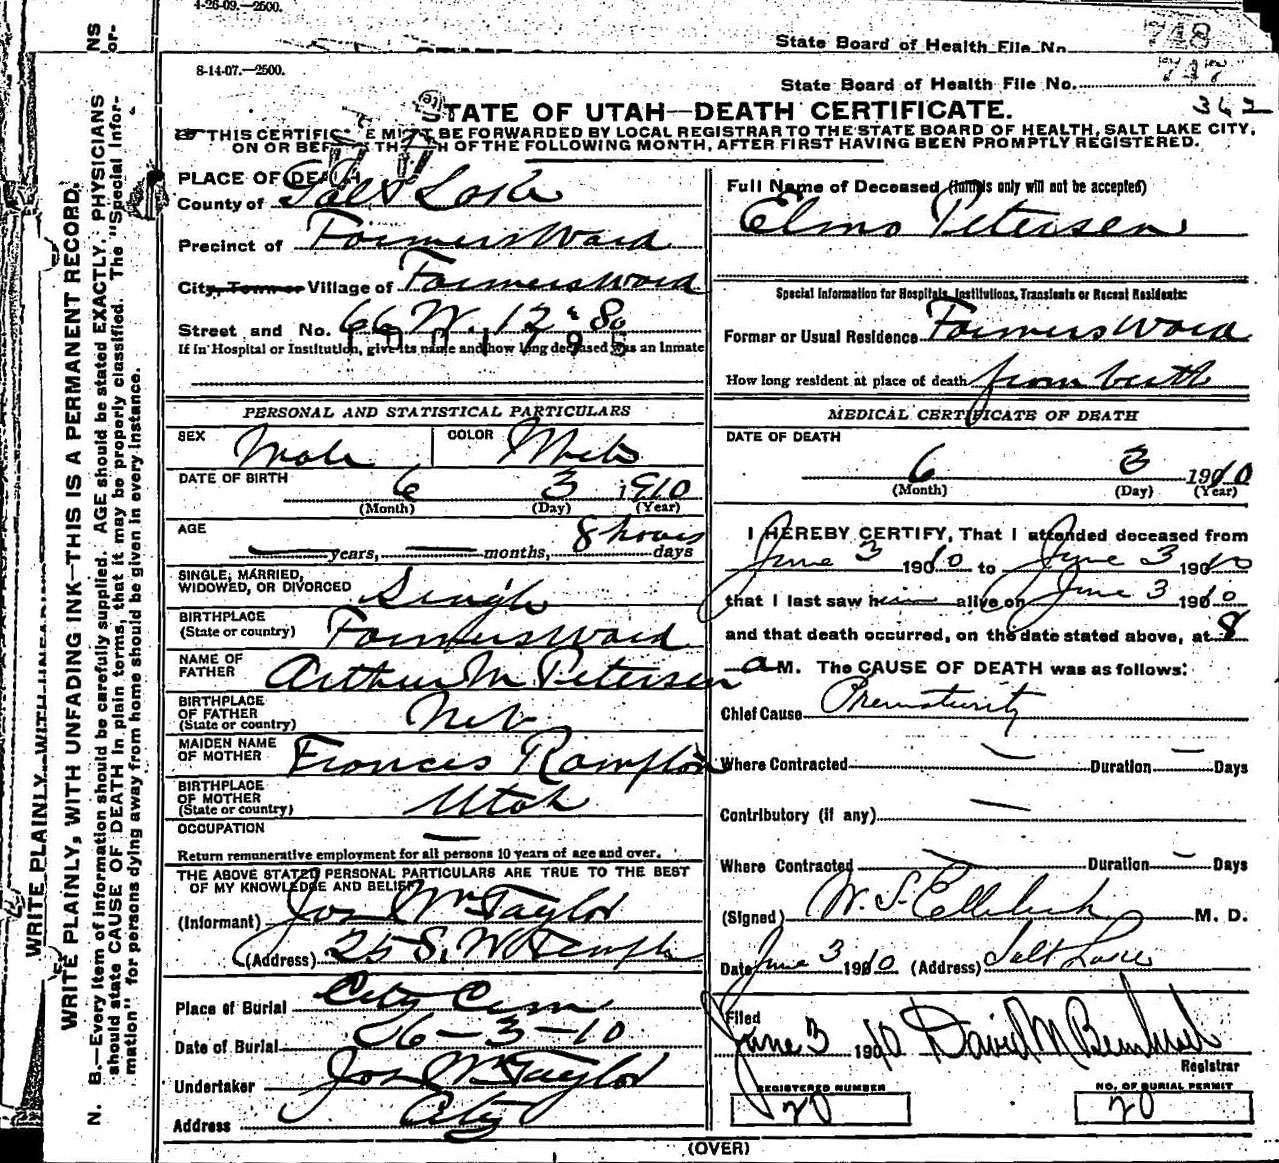 4-26-09.—2500.
State Board of Health File No. 748
8-14-07.—2500.
State Board of Health File No. 747
362
STATE OF UTAH—DEATH CERTIFICATE.
THIS CERTIFICATE MUST BE FORWARDED BY LOCAL REGISTRAR TO THE STATE BOARD OF HEALTH, SALT LAKE CITY,
ON OR BEFORE THE 5TH OF THE FOLLOWING MONTH, AFTER FIRST HAVING BEEN PROMPTLY REGISTERED.
WRITE PLAINLY, WITH UNFADING INK—THIS IS A PERMANENT RECORD.
N. B.—Every item of information should be carefully supplied. AGE should be stated EXACTLY. PHYSICIANS
should state CAUSE OF DEATH in plain terms, that it may be properly classified. The "Special Infor-
mation" for persons dying away from home should be given in every instance.
PLACE OF DEATH
County of Salt Lake
Precinct of Farmers Ward
City, Town or Village of Farmers Ward
Street and No. 66 W. 12 & 80
If in Hospital or Institution, give its name and how long deceased was an Inmate
PERSONAL AND STATISTICAL PARTICULARS
SEX Male COLOR White
DATE OF BIRTH 6 3 1910
(Month) (Day) (Year)
AGE — years, — months, 8 hours days
SINGLE, MARRIED,
WIDOWED, OR DIVORCED Single
BIRTHPLACE
(State or country) Farmers Ward
NAME OF
FATHER Arthur M Petersen
BIRTHPLACE
OF FATHER
(State or country) Neb
MAIDEN NAME
OF MOTHER Frances Rampton
BIRTHPLACE
OF MOTHER
(State or country) Utah
OCCUPATION —
Return remunerative employment for all persons 10 years of age and over.
THE ABOVE STATED PERSONAL PARTICULARS ARE TRUE TO THE BEST
OF MY KNOWLEDGE AND BELIEF
(Informant) Jos Wm Taylor
(Address) 25 S. W Temple
Place of Burial City Cem
Date of Burial 6-3-10
Undertaker Jos Wm Taylor
Address City
Full Name of Deceased (Initials only will not be accepted)
Elmo Petersen
Special Information for Hospitals, Institutions, Transients or Recent Residents:
Former or Usual Residence Farmers Ward
How long resident at place of death from birth
MEDICAL CERTIFICATE OF DEATH
DATE OF DEATH
6 3 1910
(Month) (Day) (Year)
I HEREBY CERTIFY, That I attended deceased from
June 3 1910 to June 3 1910
that I last saw him alive on June 3 1910
and that death occurred, on the date stated above, at 8
a M. The CAUSE OF DEATH was as follows:
Chief Cause Prematurity
Where Contracted — Duration — Days
Contributory (if any) —
Where Contracted — Duration — Days
(Signed) W. S. Ellerbeck M. D.
Date June 3 1910 (Address) Salt Lake
Filed
June 3 1910 David M
Registrar
REGISTERED NUMBER
20
NO. OF BURIAL PERMIT
20
(OVER)